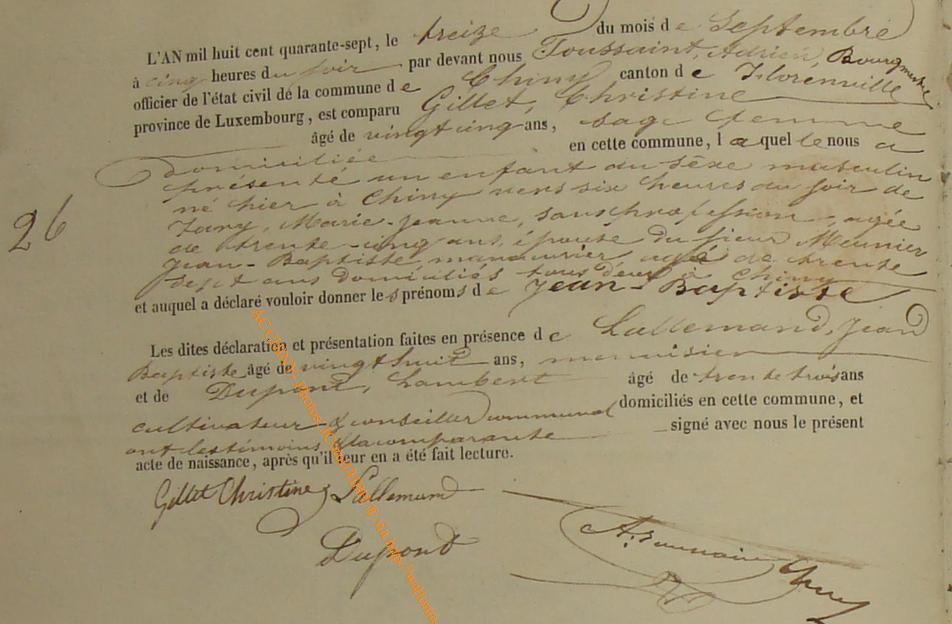 L'AN mil huit cent quarante-sept, le treize du mois de Septembre
à cinq heures du soir par devant nous Toussaint, Adrien, Bourgmestre
officier de l'état civil de la commune de Chiny canton de Florenville
province de Luxembourg, est comparu Gillet, Christine
âgé de vingt cinq ans, sage femme
domiciliée en cette commune, laquelle nous a
présenté un enfant du sèxe masculin
26
né hier à Chiny vers six heures du soir de
Marie-Jeanne, sans profession, agée
de trente-cinq ans, épouse du sieur Meunier
Jean-Baptiste manouvrier agé de trente
sept ans domiciliés tous deux à Chiny
et auquel a déclaré vouloir donner les prénoms de Jean-Baptiste
Les dites déclaration et présentation faites en présence de Lallemand, Jean
Baptiste âgé de vingt huit ans, menuisier
et de Dupont, Lambert âgé de trente trois ans
cultivateur & conseiller communal domiciliés en cette commune, et
ont les témoins & la comparante signé avec nous le présent
acte de naissance, après qu'il leur en a été fait lecture.
Gillet Christine Lallemand
Dupond
A. Toussaint